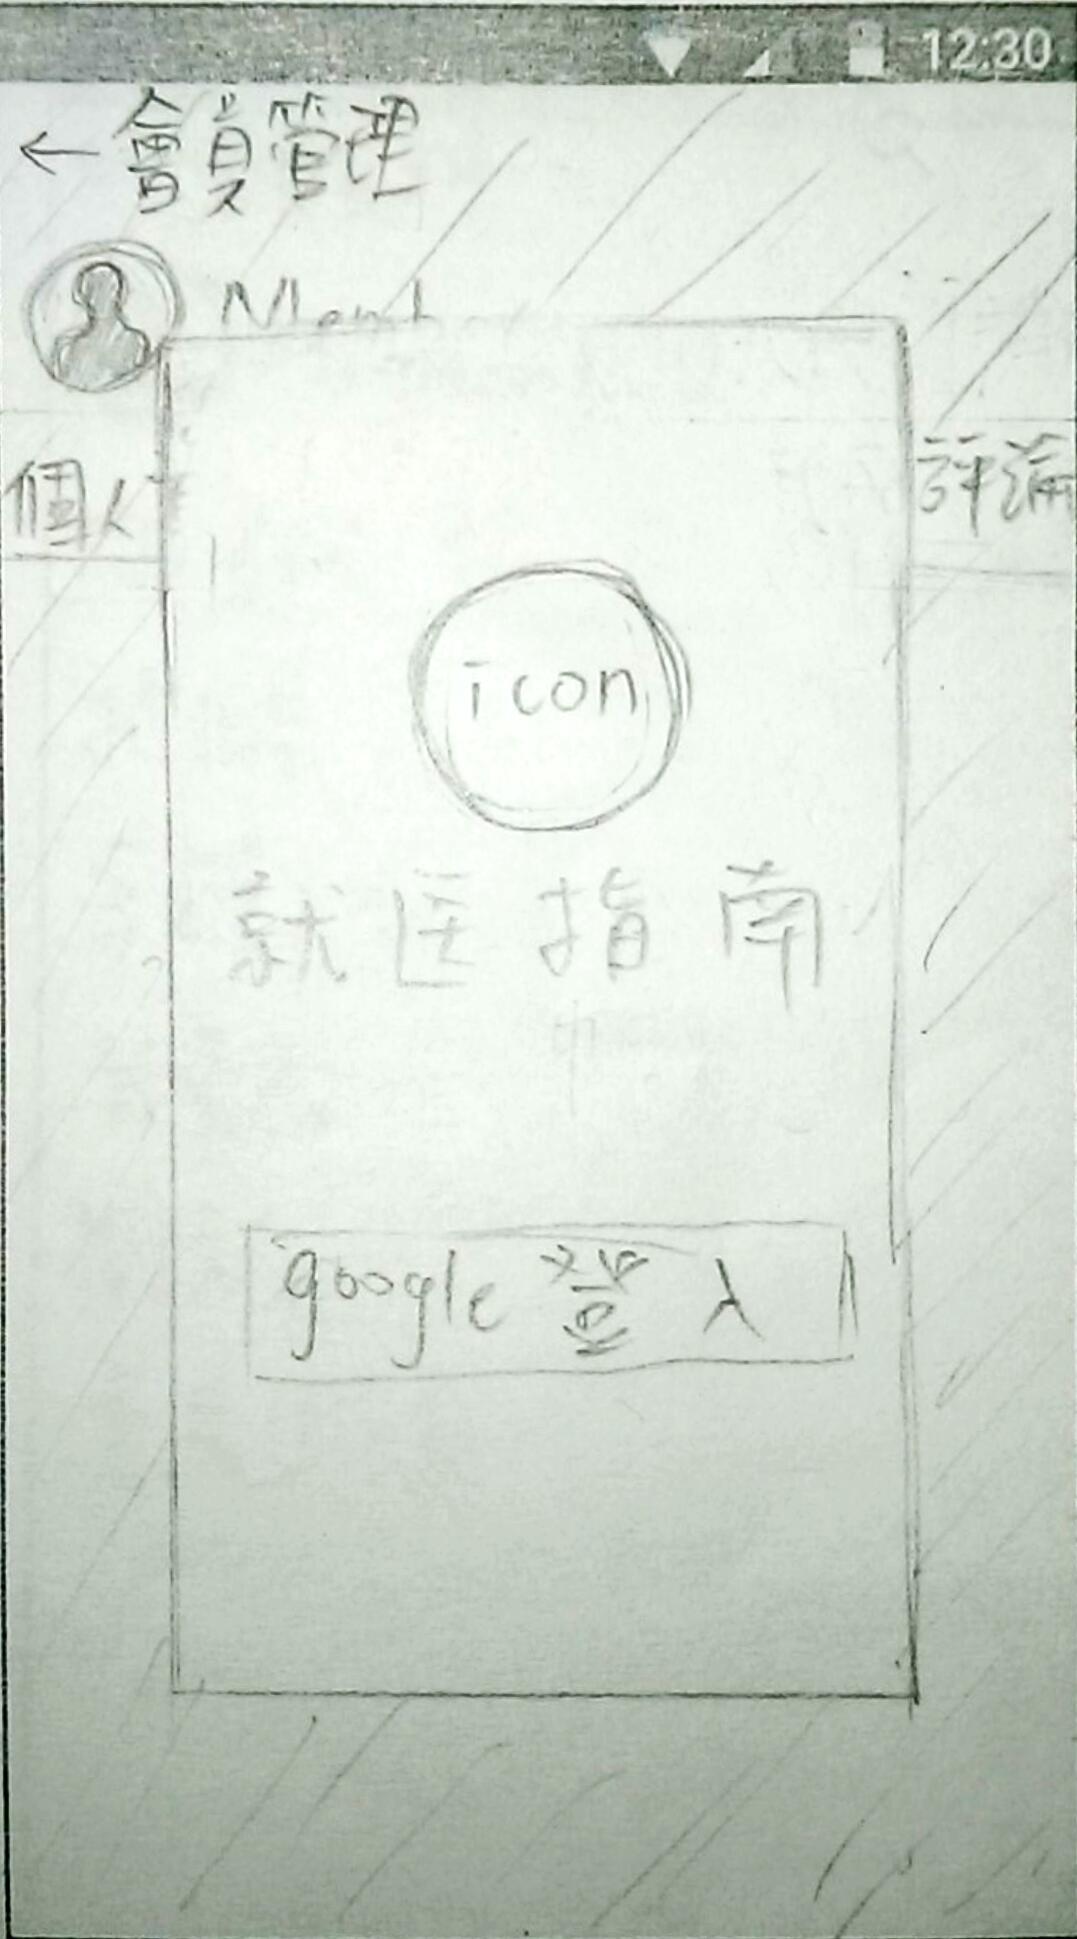 12:30
← 會員管理
個人 評論
icon
就医指南
google 登入